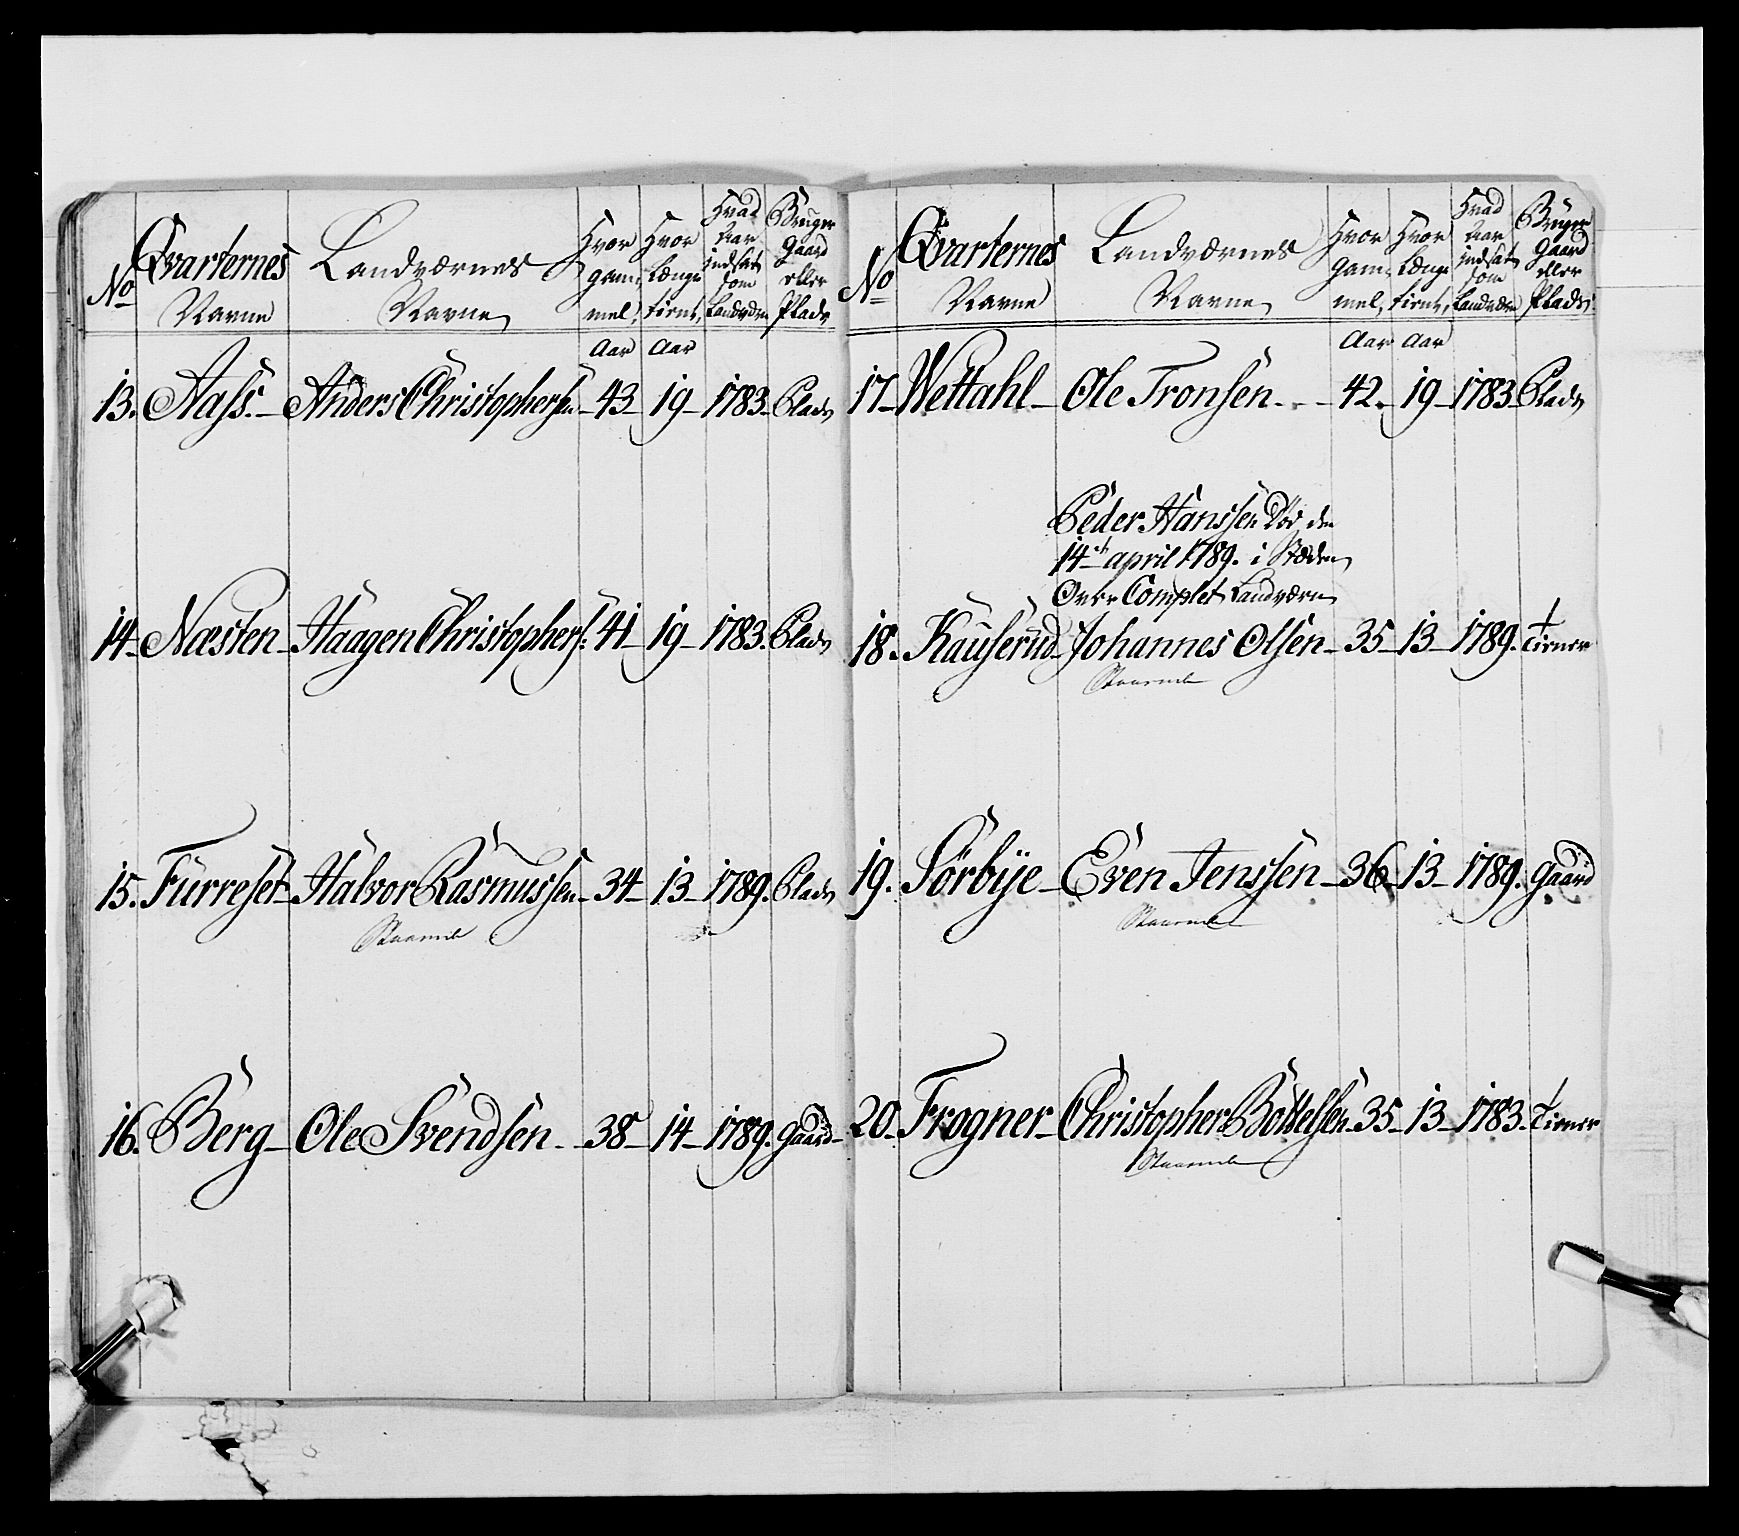 No Qvarternes Navne Landværnes Navne Hvor gammel, Hvor Længe tient, Hvad Aar indsat som Landværn Bruger Gaard eller Plads
Aar Aar
13. Aass. Anders Christophersen 43 19 1783 Plads
14 Næsten Haagen Christophers: 41 19 1783 Plads
15. Furreset Halvor Rasmussen 34 13 1789. Plads
16. Berg Ole Svendsen 38 14 1789. gaard
No Qvarternes Navne Landværnes Navne Hvor gammel, Hvor Længe tient, Hvad Aar indsat som Landværn Bruger Gaard eller Plads
Aar Aar
17 Wettahl Ole Tronsen 42 19 1783 Plads
Peder Hanssen Død den
14de april 1789. i Stæden
Over Complet Landværn
18. Kauserud Johannes Olsen 35 13 1789. tiener
19. Sörbÿe Even Jenssen 36 13 1789. gaard
20. Frogner Christopher Bottelsen 35 13 1783. tiener